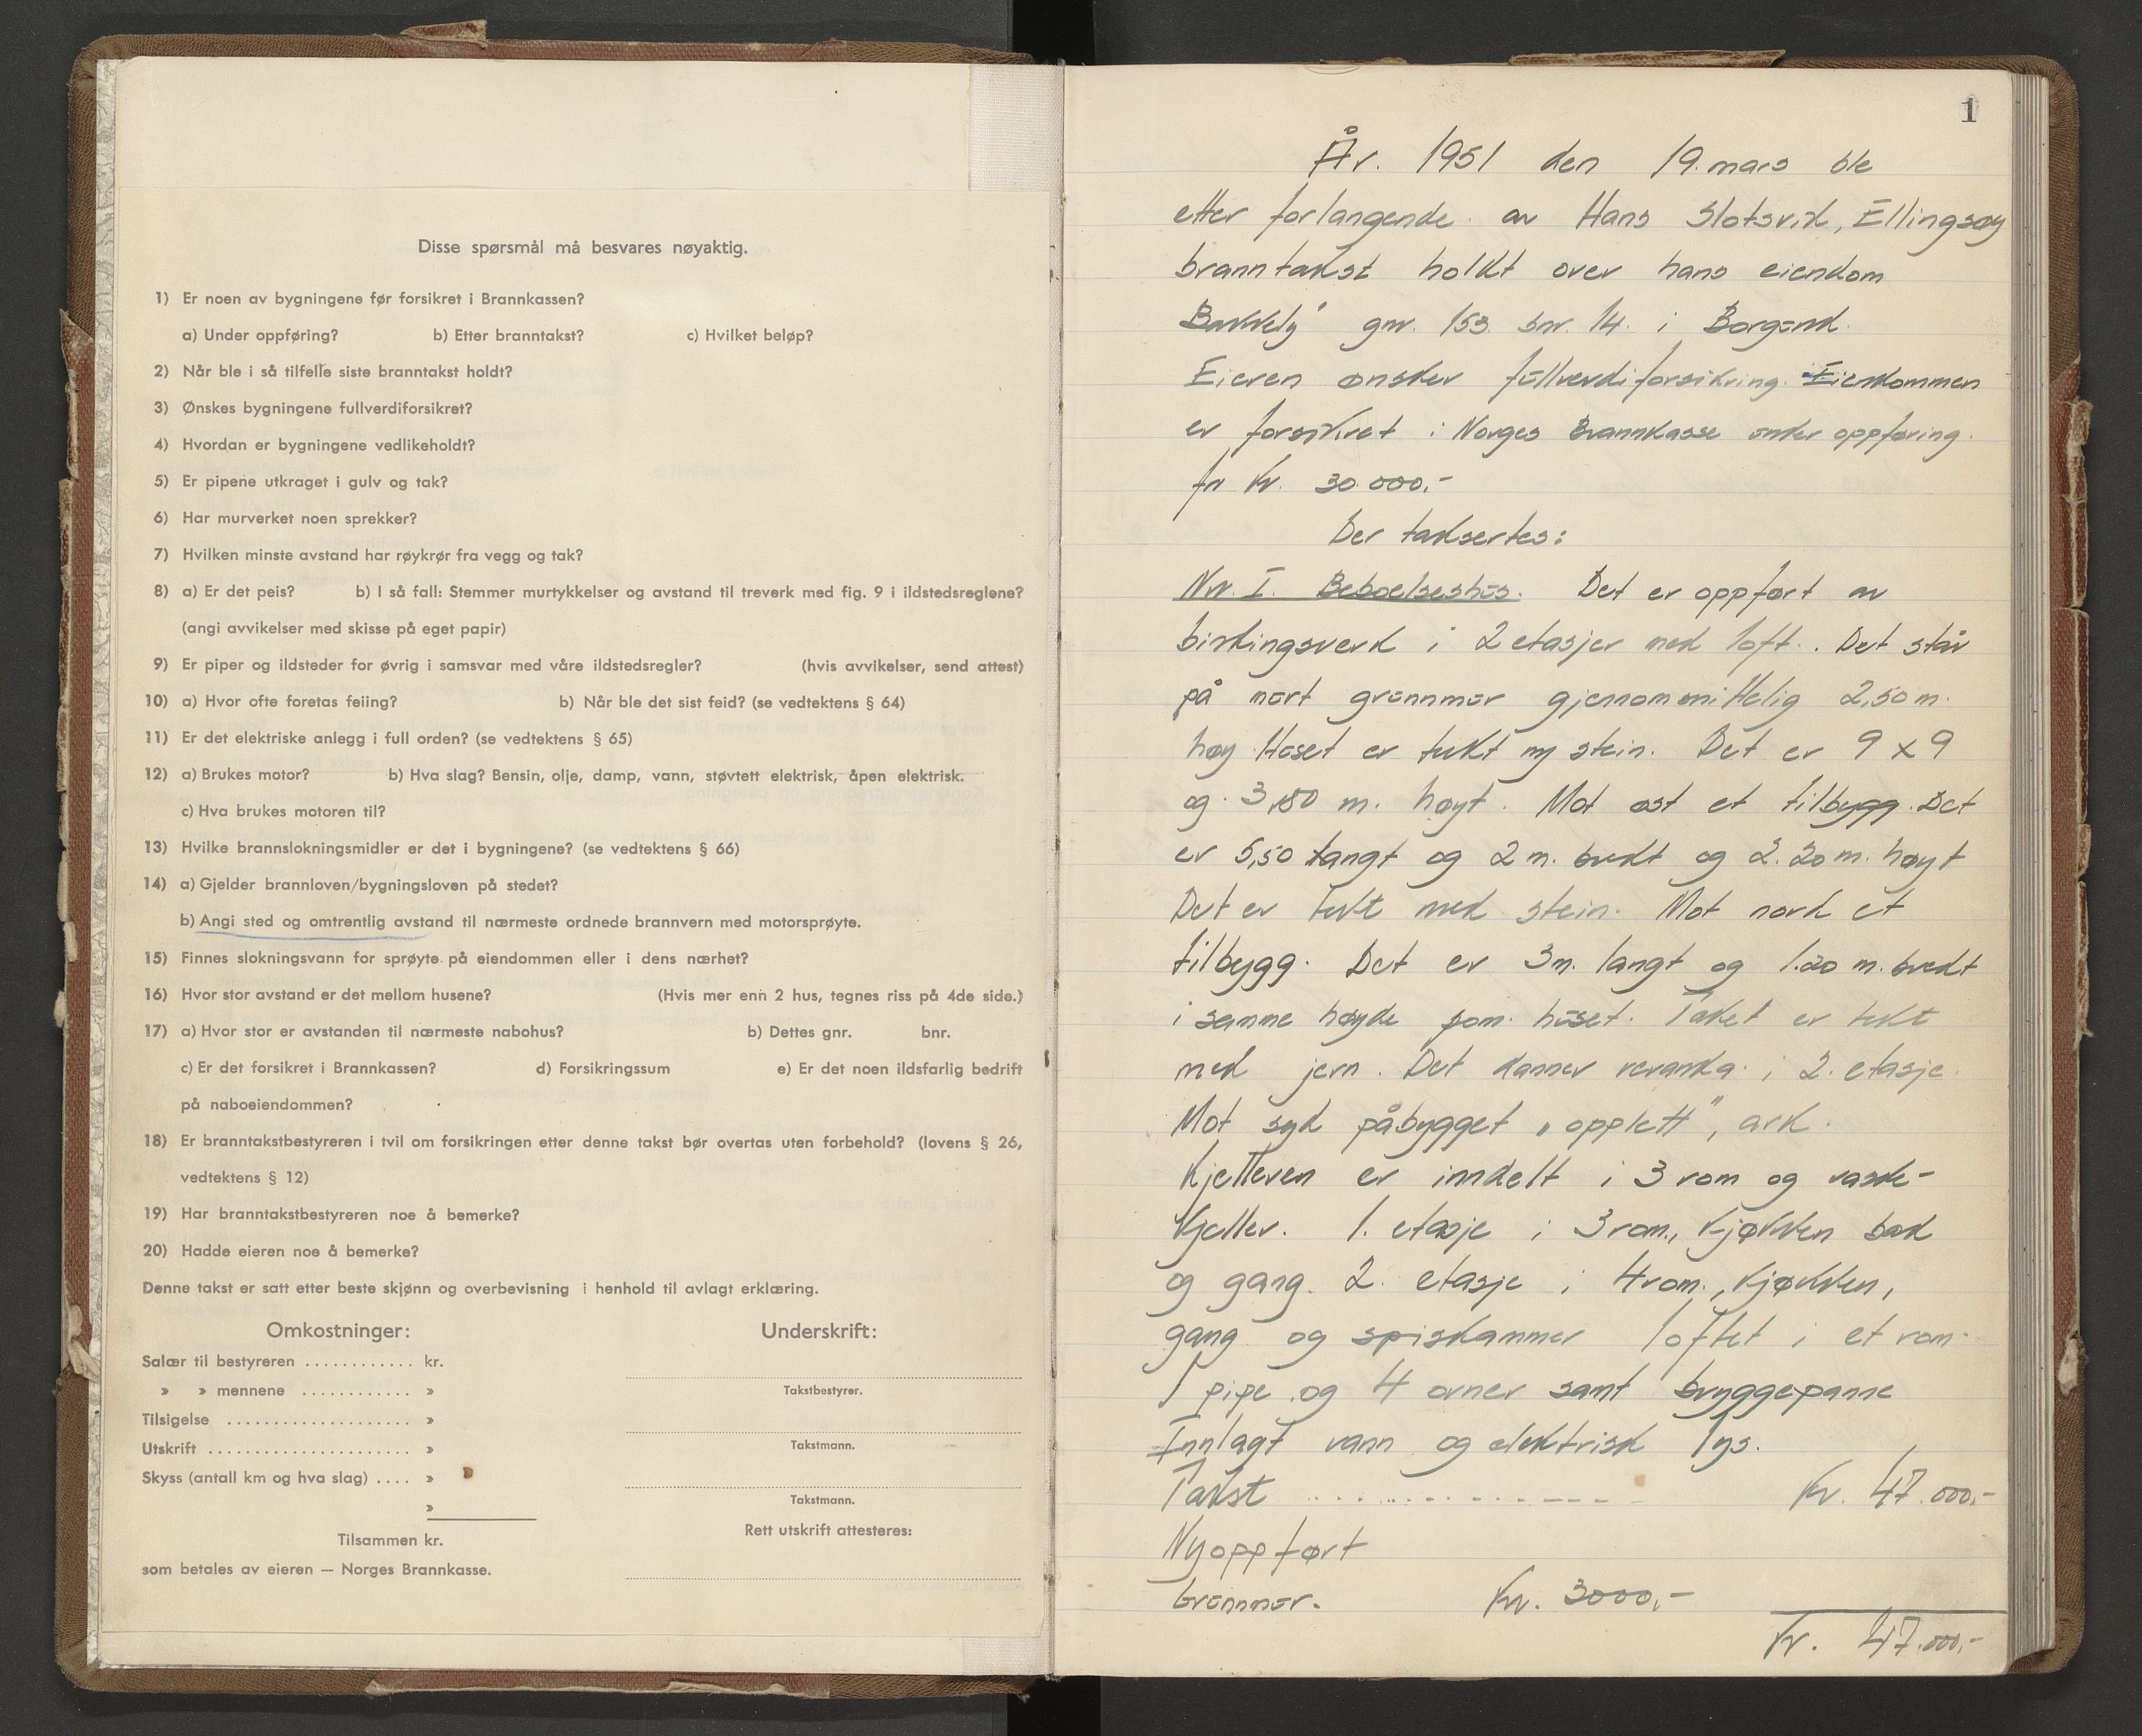 Disse spørsmål må besvares nøyaktig.
1) Er noen av bygningene før forsikret i Brannkassen?
a) Under oppføring? b) Etter branntakst? c) Hvilket beløp?
2) Når ble i så tilfelle siste branntakst holdt?
3) Ønskes bygningene fullverdiforsikret?
4) Hvordan er bygningene vedlikeholdt?
5) Er pipene utkraget i gulv og tak?
6) Har murverket noen sprekker?
7) Hvilken minste avstand har røykrør fra vegg og tak?
8) a) Er det peis? b) I så fall: Stemmer murtykkelser og avstand til treverk med fig. 9 i ildstedsreglene?
(angi avvikelser med skisse på eget papir)
9) Er piper og ildsteder for øvrig i samsvar med våre ildstedsregler? (hvis avvikelser, send attest)
10) a) Hvor ofte foretas feiing? b) Når ble det sist feid? (se vedtektens § 64)
11) Er det elektriske anlegg i full orden? (se vedtektens § 65)
12) a) Brukes motor? b) Hva slag? Bensin, olje, damp, vann, støvtett elektrisk, åpen elektrisk.
c) Hva brukes motoren til?
13) Hvilke brannslokningsmidler er det i bygningene? (se vedtektens § 66)
14) a) Gjelder brannloven/bygningsloven på stedet?
b) Angi sted og omtrentlig avstand til nærmeste ordnede brannvern med motorsprøyte.
15) Finnes slokningsvann for sprøyte på eiendommen eller i dens nærhet?
16) Hvor stor avstand er det mellom husene? (Hvis mer enn 2 hus, tegnes riss på 4de side.)
17) a) Hvor stor er avstanden til nærmeste nabohus? b) Dettes gnr. bnr.
c) Er det forsikret i Brannkassen? d) Forsikringssum e) Er det noen ildsfarlig bedrift
på naboeiendommen?
18) Er branntakstbestyreren i tvil om forsikringen etter denne takst bør overtas uten forbehold? (lovens § 26,
vedtektens § 12)
19) Har branntakstbestyreren noe å bemerke?
20) Hadde eieren noe å bemerke?
Denne takst er satt etter beste skjønn og overbevisning i henhold til avlagt erklæring.
Omkostninger: Underskrift:
Salær til bestyreren ............ kr.
» » mennene ............ »
Takstbestyrer.
Tilsigelse .................... »
Utskrift ...................... »
Takstmann.
Skyss (antall km og hva slag) .... »
Takstmann.
»
Tilsammen kr.
Rett utskrift attesteres:
som betales av eieren — Norges Brannkasse.
1
År. 1951 den 19. mars ble
etter forlangende av Hans Slotsvik, Ellingsøy
branntakst holdt over hans eiendom
Bakkely" gnr. 153 bnr. 14. i Borgund.
Eieren ønsker fullverdiforsikring. Eiendommen
er forsikret i Norges Brannkasse under oppføring.
for Kr. 30.000,-
Der taksertes:
Nr. I. Beboelseshus. Det er oppført av
bindingsverk i 2 etasjer med loft. Det står
på murt grunnmur gjennomsnittelig 2,50 m.
høy Huset er tekt m/ stein. Det er 9 x 9
og 3,80 m. høyt. Mot øst et tilbygg. Det
er 5,50 langt og 2 m. bredt og 2.20 m. høyt
Det er tekt med stein. Mot nord et
tilbygg. Det er 3 m. langt og 1.20 m. bredt
i samme høyde som huset. Taket er tekt
med jern. Det danner veranda i 2. etasje.
Mot syd påbygget „opplett", ark.
Kjelleren er inndelt i 3 rom og vaske-
kjeller. 1. etasje i 3 rom, kjøkken bad
og gang. 2. etasje i 4 rom, kjøkken,
gang og spiskammer loftet i et rom.
1 pipe og 4 ovner samt bryggepanne
Innlagt vann og elektrisk lys.
Takst .............. Kr. 47.000,-
Nyoppført
Grunnmur. Kr. 3000,-
Kr. 47.000,-